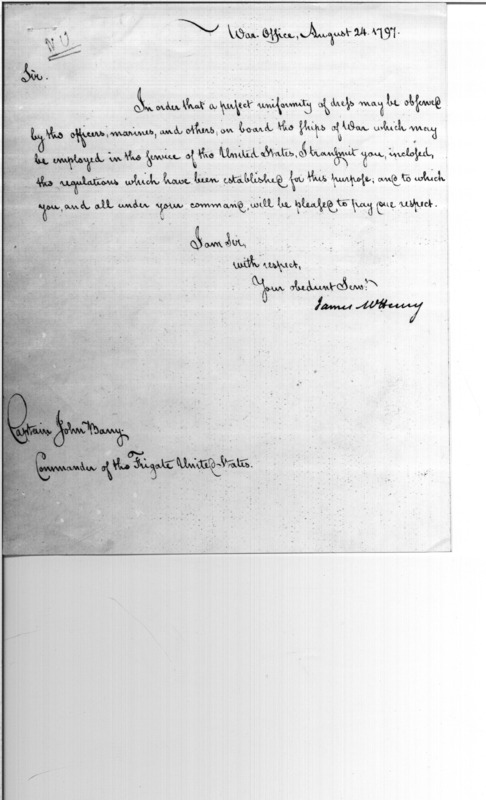 NU
War Office, August 24. 1797.
Sir.
In order that a perfect uniformity of dress may be observed
by the officers, marines, and others, on board the ships of War which may
be employed in the service of the United States, I transmit you, inclosed,
the regulations which have been established for this purpose, and to which
you, and all under your command, will be pleased to pay due respect.
I am Sir,
with respect,
Your obedient Servt.
James McHenry
Captain John Barry.
Commander of the Frigate United States.